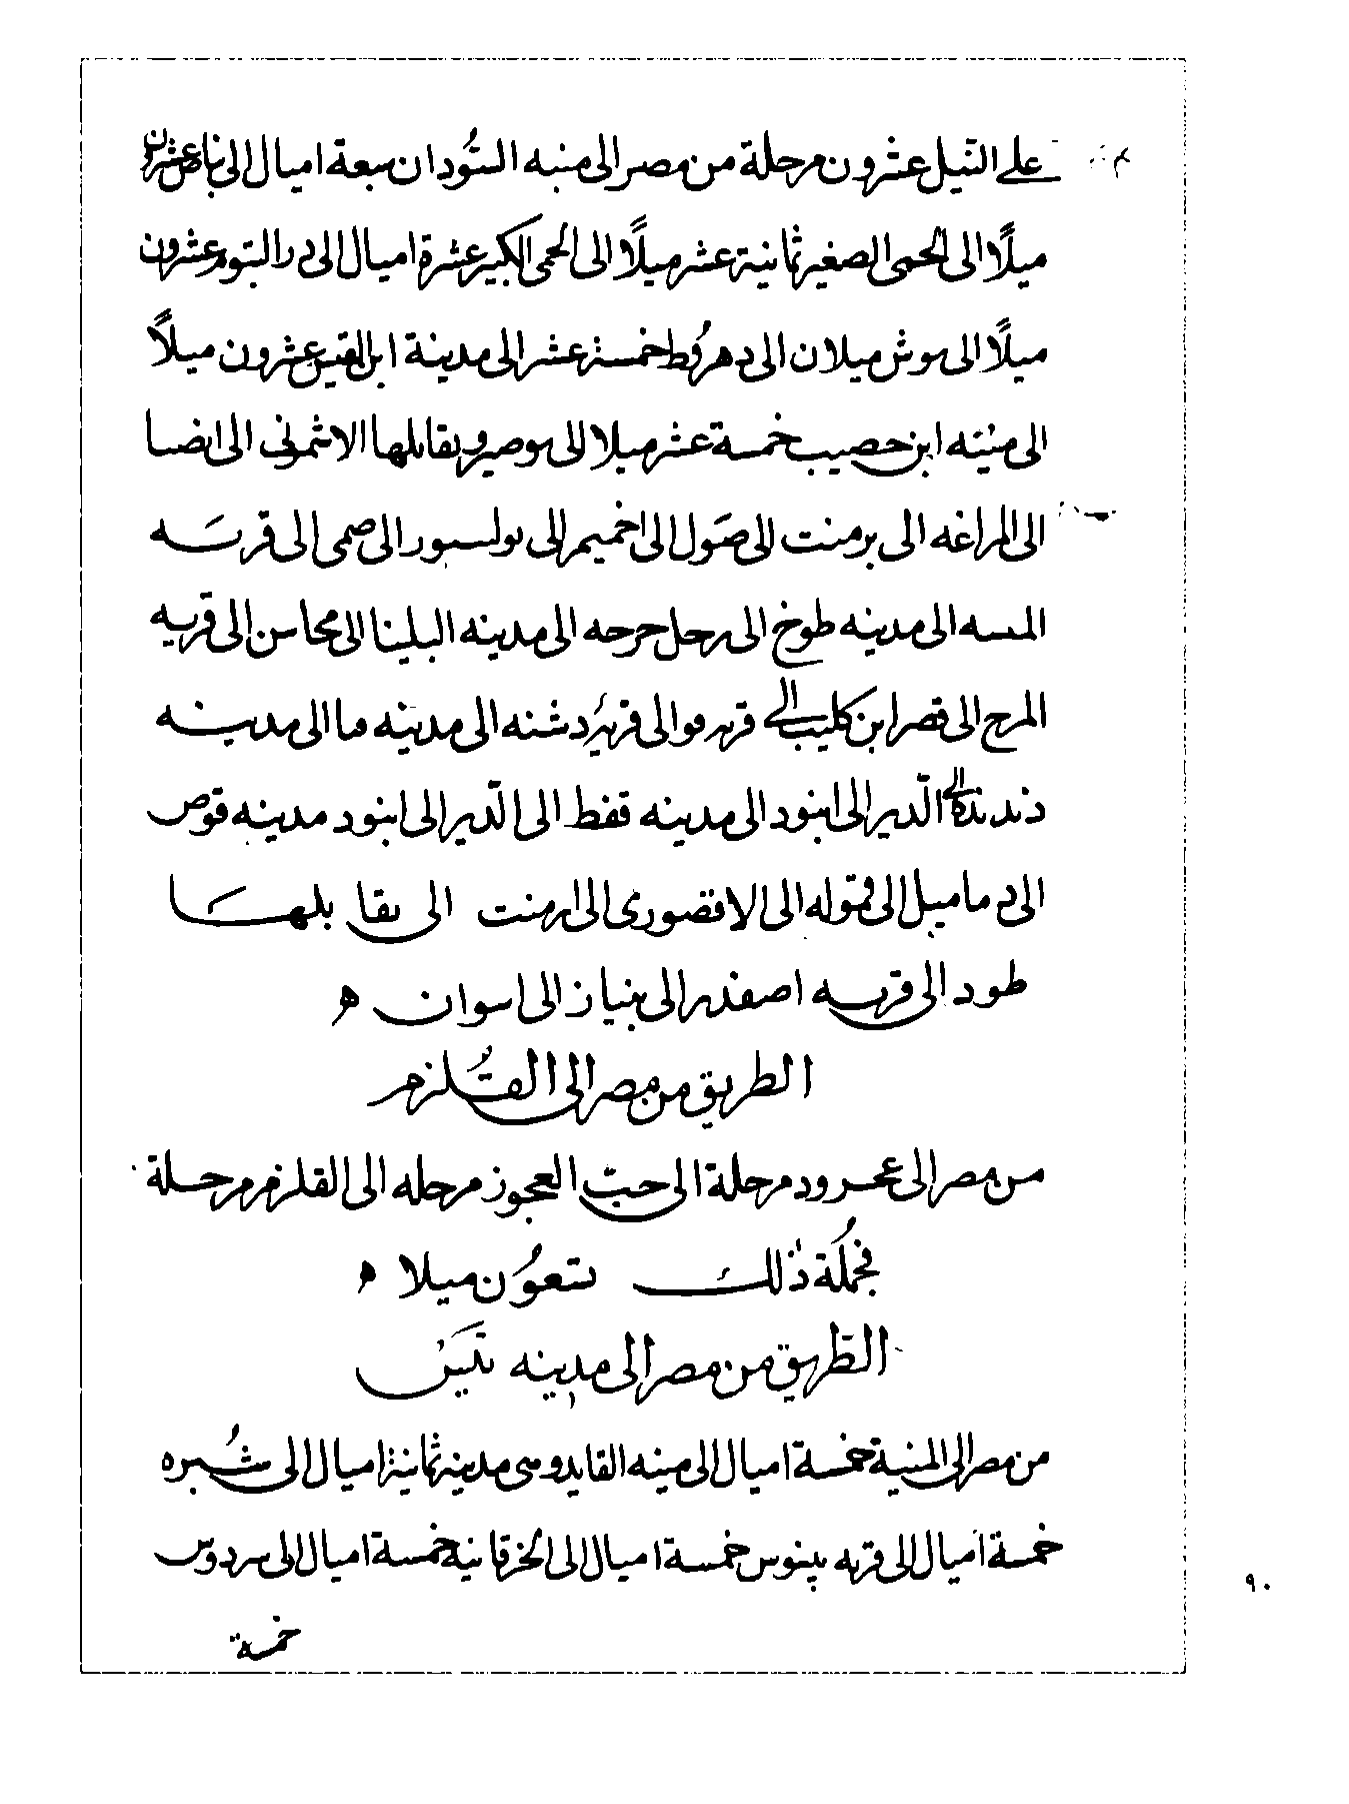 على النيل عشرون مرحلة من مصر الى منيه السودان سبعة اميال الى بياض عشرون
ميلًا الى الحمى الصغير ثمانية عشر ميلًا الى الحمى الكبير عشرة اميال الى دير البتوم عشرون
ميلًا الى بوش ميلان الى دهرُوط خمسة عشر الى مدينة ابن القيس عشرون ميلاً
الى منيته ابن حصيب خمسة عشر ميلا الى بوصير ويقابلها الاشمونى الى انصنا
الى المراغه الى برمنت الى صَول الى اخميم الى بولسبور الى صمى الى قريه
المسه الى مدينه طوخ الى رحل جرجه الى مدينه البلينا الى محاسن الى قريه
المرج الى قصر ابن كليب الى قريه موا الى قريه دشنه الى مدينه ما الى مدينه
دندنة الى الدّير الى ابنود الى مدينه قفط الى الدّير الى ابنود مدينه قوص
الى دماميل الى قموله الى الاقصورى الى ارمنت الى بقا بلها
طود الى قريه اصفند الى بنيان الى اسوان ه
الطريق من مصر الى القُلزم
من مصر الى عجرود مرحلة الى حبّ العجوز مرحله الى القلزم مرحلة
فجملُة ذلك تسعوُن ميلا ه
الطّريق من مصر الى مدينه تنَيس
من مصر الى المنية خمسة اميال الى منيه القايد وهى مدينه ثمانية اميال الى شُبره
خمسة اميال الى قريه بينوس خمسة اميال الى الخرقانية خمسة اميال الى سردوس
خمسة
٩٠